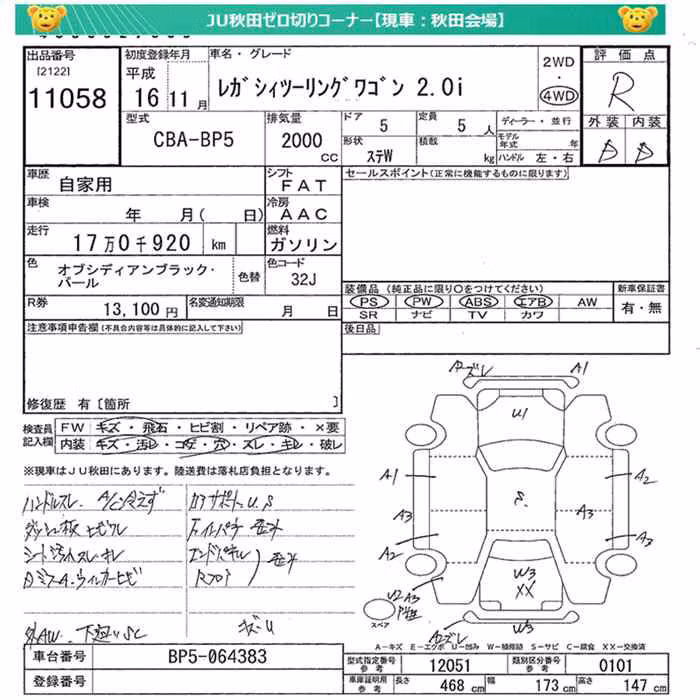 JU秋田ゼロ切りコーナー【現車：秋田会場】
出品番号 初度登録年月 車名・グレード 2WD ・ 4WD 評価点
[2122] 平成
11058 16年11月 レガシィツーリングワゴン 2.0i R
型式 排気量 ドア 定員 ディーラー・並行 外装 内装
CBA-BP5 2000cc 5 5人 モデル年式 年
形状 積載
ステW kg ハンドル 左・右
車歴 自家用 シフト FAT セールスポイント(正常に機能するものに限ります)
車検 年 月( 日) 冷房 AAC
走行 17万0千920 km 燃料 ガソリン
色 オブシディアンブラック・パール 色替 色コード 32J
装備品 (純正品に限り○をつけてください) 新車保証書
PS PW ABS エアB AW 有・無
SR ナビ TV カワ
R券 13,100円 名変通知期限 月 日
後日品
注意事項申告欄(不具合内容等は具体的に記入して下さい)
修復歴 有 [箇所 ]
検査員記入欄 FW キズ・飛石・ヒビ割・リペア跡・×要
内装 キズ・汚レ・コゲ・穴・スレ・キレ・破レ
※現車はＪＵ秋田にあります。陸送費は落札店負担となります。
ハンドルスレ A/C冷えず
シート汚れスレキレ
キズU
Aズレ A1
U1
A1 S A2
A3 A3
A2 A2
W3
XX
U2 A3
スペア
Aズレ W3
A－キズ E－エクボ U－凹み W－補修跡 S－サビ C－腐食 XX－交換済
車台番号 BP5-064383
登録番号
型式指定番号 参考 12051 類別区分番号 参考 0101
車庫証明用 参考 長さ 468cm 幅 173cm 高さ 147cm